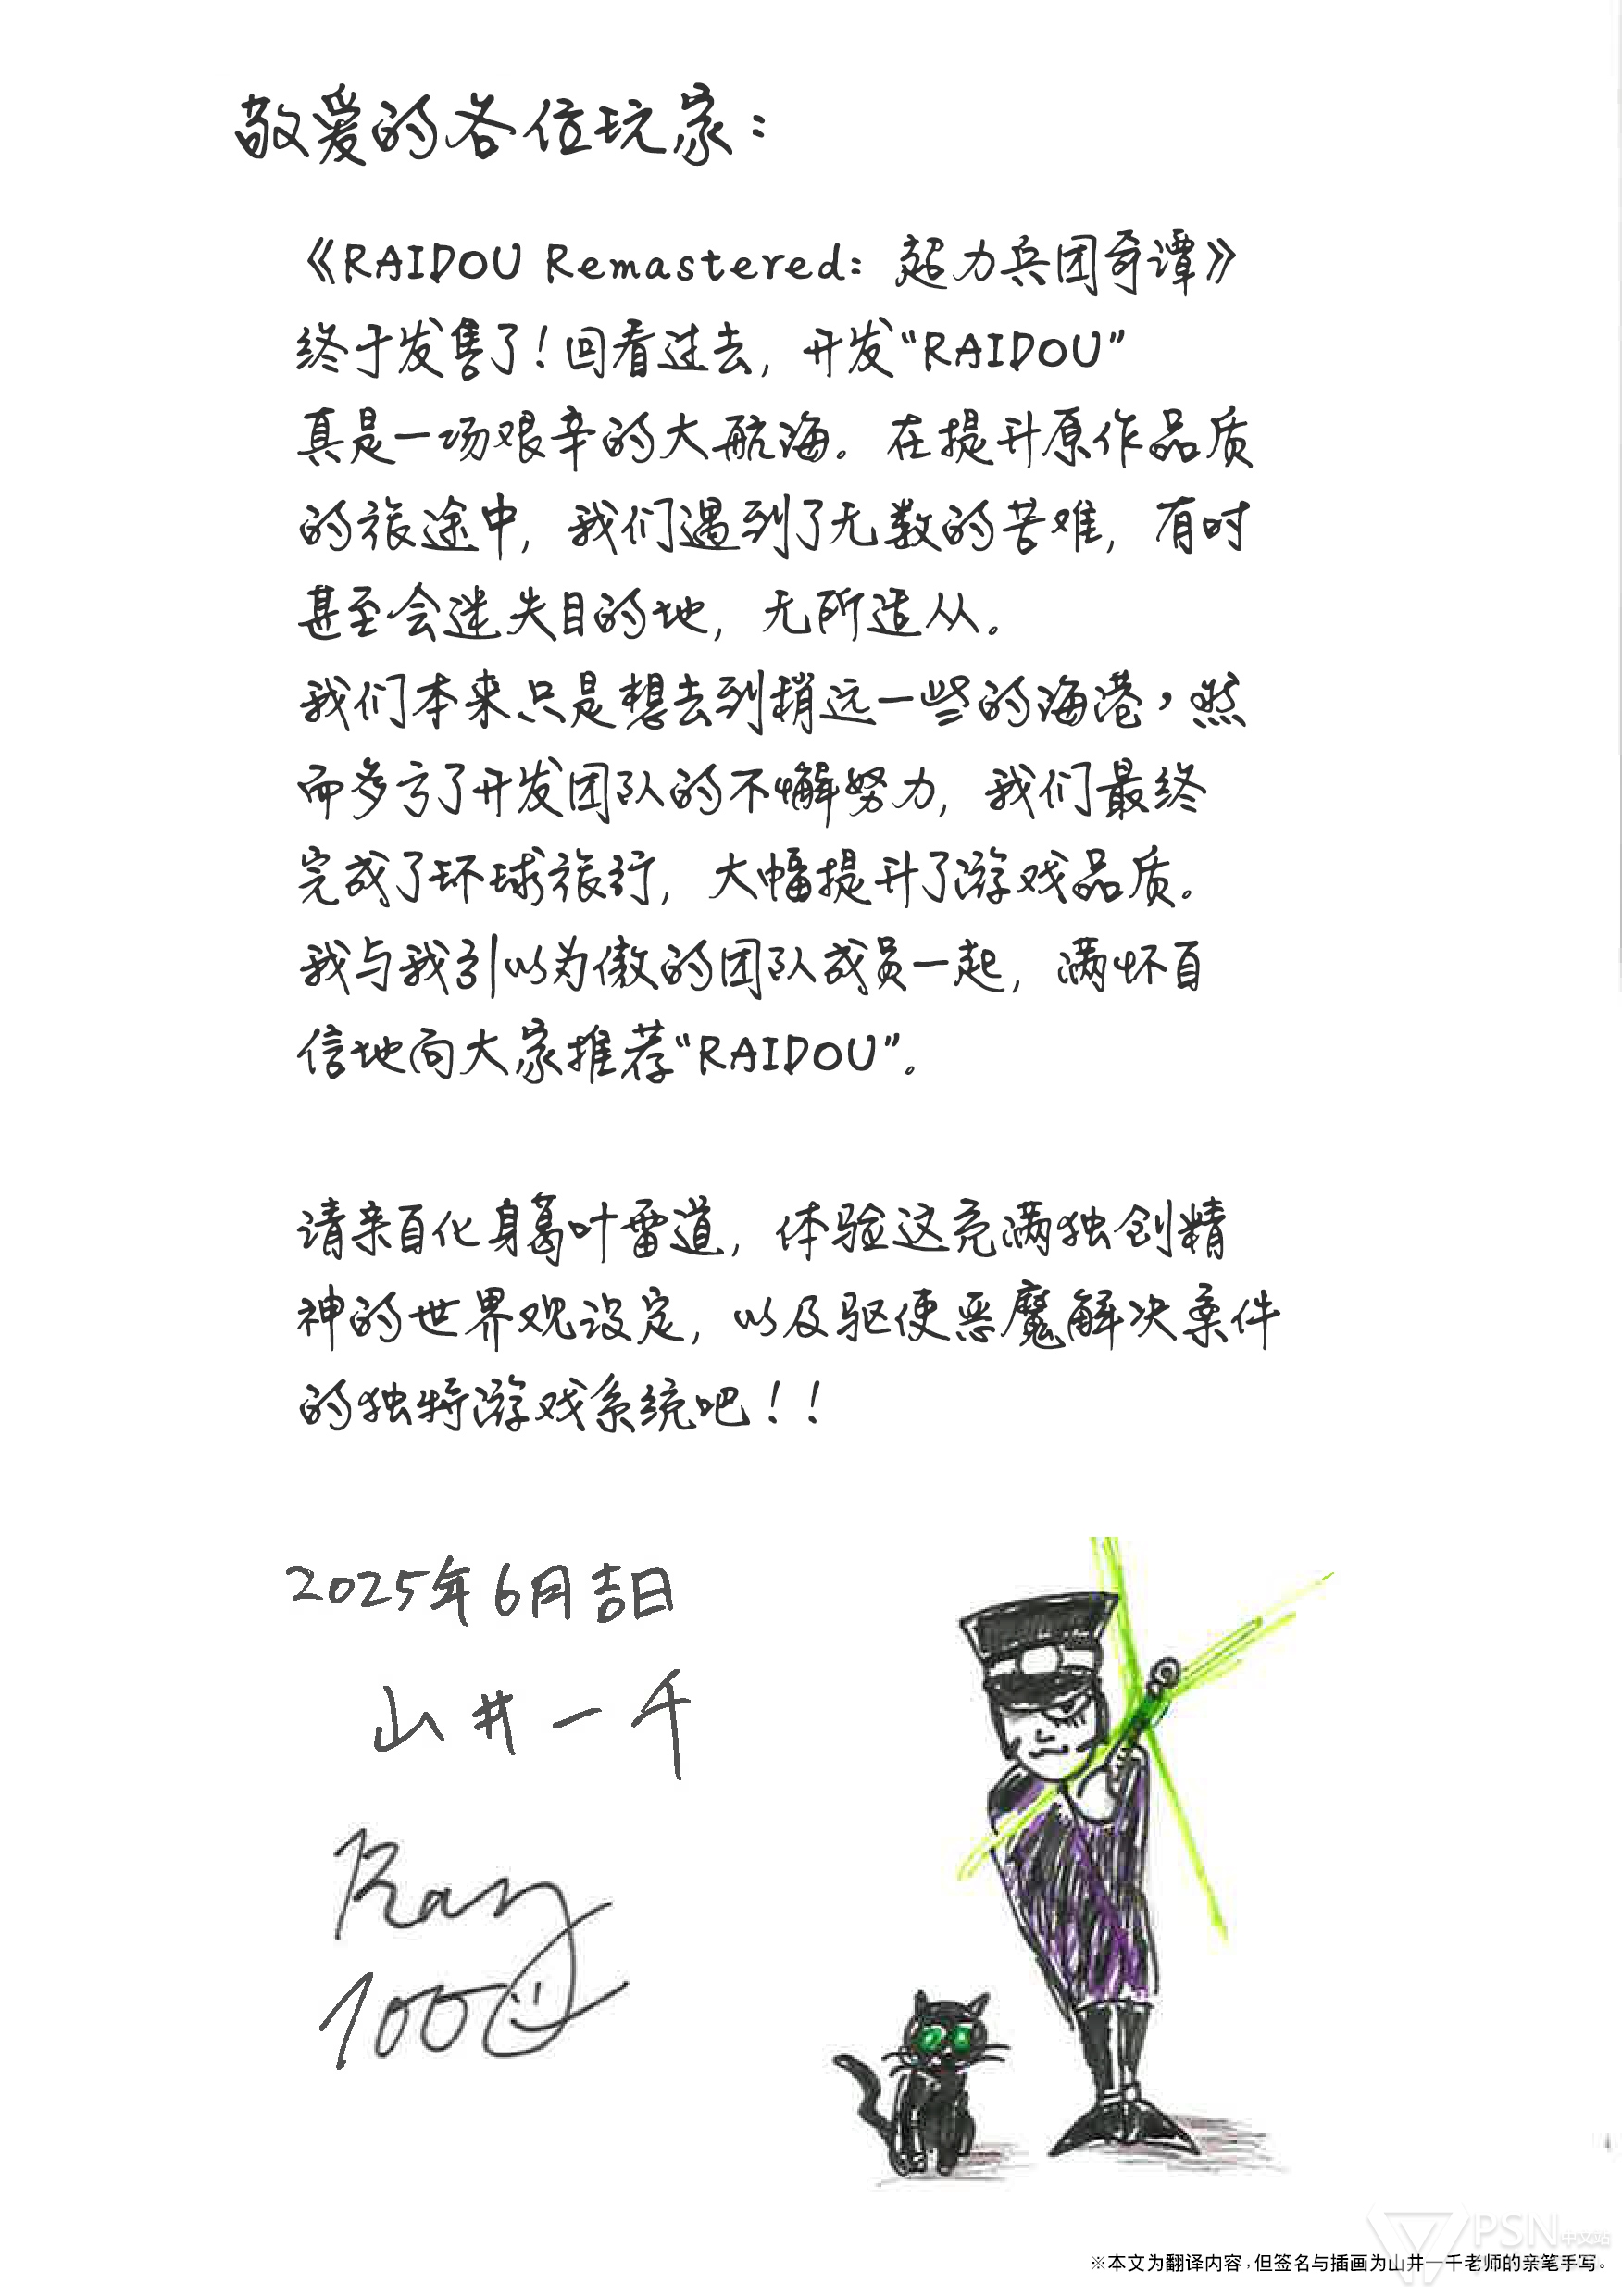 敬爱的各位玩家：
《RAIDOU Remastered：超力兵团奇谭》
终于发售了！回看过去，开发“RAIDOU”
真是一场艰辛的大航海。在提升原作品质
的旅途中，我们遇到了无数的苦难，有时
甚至会迷失目的地，无所适从。
我们本来只是想去到稍远一些的海港，然
而多亏了开发团队的不懈努力，我们最终
完成了环球旅行，大幅提升了游戏品质。
我与我引以为傲的团队成员一起，满怀自
信地向大家推荐“RAIDOU”。
请亲自化身葛叶雷道，体验这充满独创精
神的世界观设定，以及驱使恶魔解决案件
的独特游戏系统吧！！
2025年6月吉日
山井一千
Ray
1000
PSN中文站
※本文为翻译内容，但签名与插画为山井一千老师的亲笔手写。